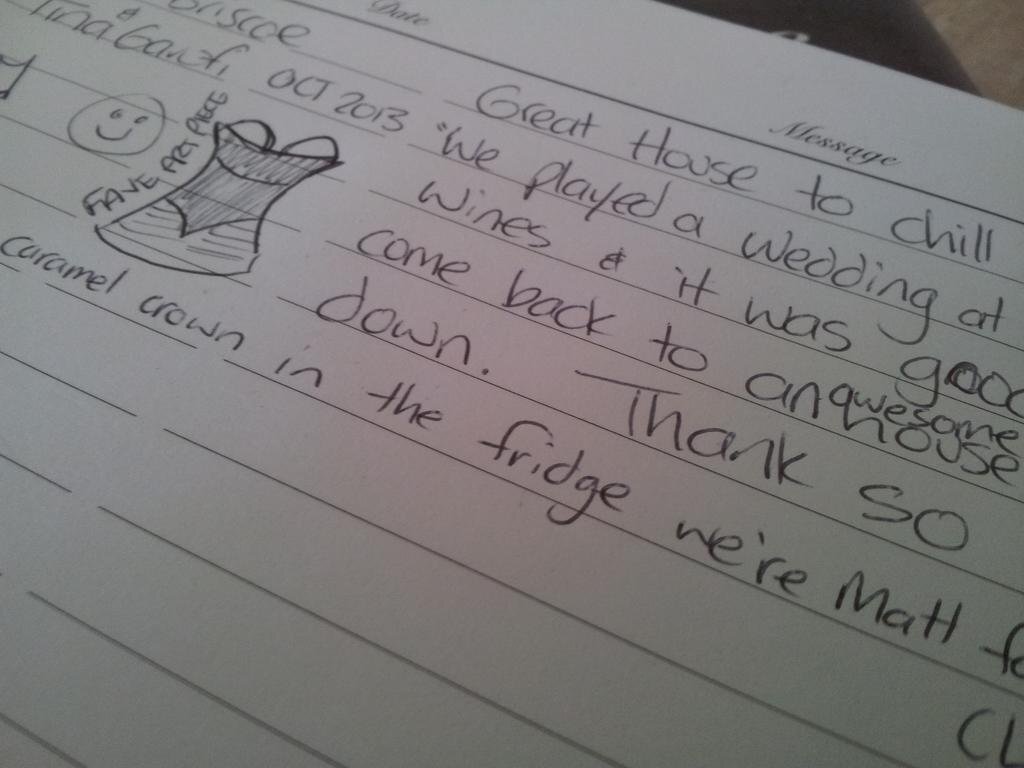 Date
Message
Briscoe
Great House to chill
Tina & OCT 2013 We played a wedding at
wines & it was good
FAVE ART PIECE
come back to an awesome
house
down. Thank so
caramel crown in the fridge we're Matt
CL